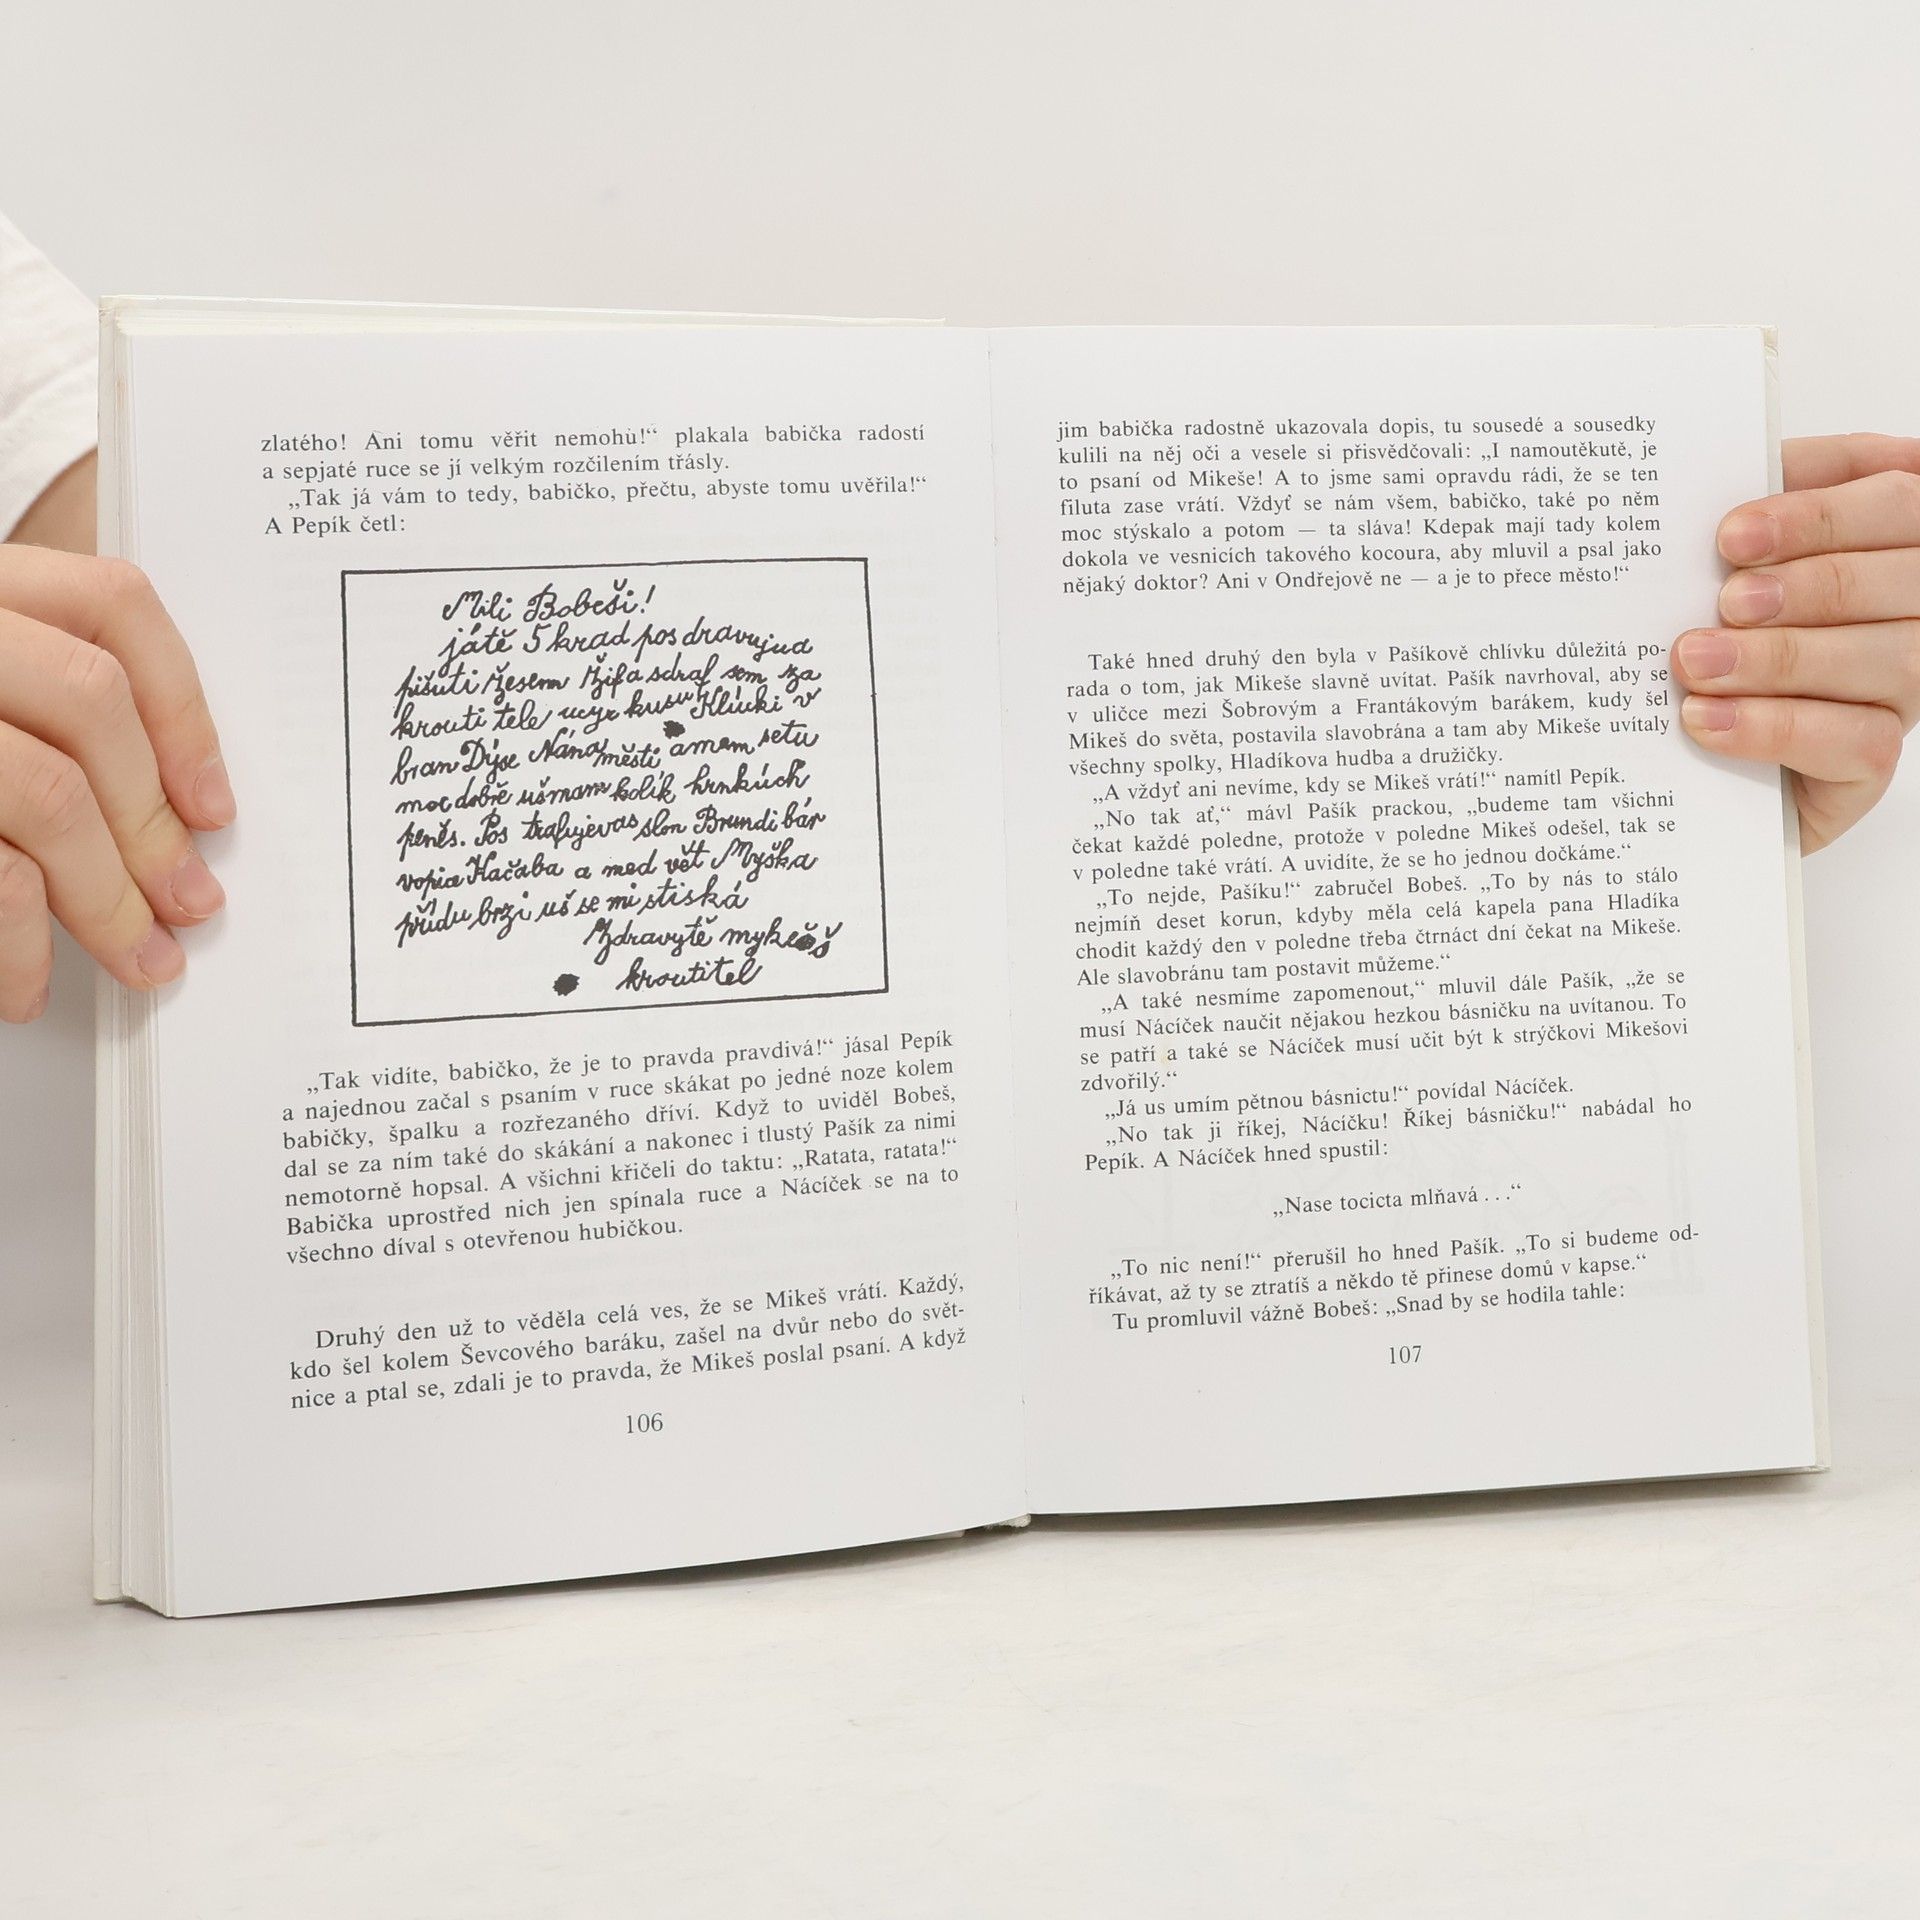 zlatého! Ani tomu věřit nemohu!“ plakala babička radostí
a sepjaté ruce se jí velkým rozčilením třásly.
„Tak já vám to tedy, babičko, přečtu, abyste tomu uvěřila!“
A Pepík četl:
Mili Bobeši!
játě 5 krad pos dravujua
pišuti žesem žifa sdraf sem za
krouti tele ucyr kusu Klucki v
bran Dýse Nána městi amam setu
moc dobře ušmam kolik hrnkúch
peněs. Pos trafujevas slon Brundibár
vopice Kačaba a med vět Myška
přídu brzi uš se mi stiská
Zdravytě mykeš
kroutitel
„Tak vidíte, babičko, že je to pravda pravdivá!“ jásal Pepík
a najednou začal s psaním v ruce skákat po jedné noze kolem
babičky, špalku a rozřezaného dříví. Když to uviděl Bobeš,
dal se za ním také do skákání a nakonec i tlustý Pašík za nimi
nemotorně hopsal. A všichni křičeli do taktu: „Ratata, ratata!“
Babička uprostřed nich jen spínala ruce a Nácíček se na to
všechno díval s otevřenou hubičkou.
Druhý den už to věděla celá ves, že se Mikeš vrátí. Každý,
kdo šel kolem Ševcového baráku, zašel na dvůr nebo do svět-
nice a ptal se, zdali je to pravda, že Mikeš poslal psaní. A když
106
jim babička radostně ukazovala dopis, tu sousedé a sousedky
kulili na něj oči a vesele si přisvědčovali: „I namoutěkutě, je
to psaní od Mikeše! A to jsme sami opravdu rádi, že se ten
filuta zase vrátí. Vždyť se nám všem, babičko, také po něm
moc stýskalo a potom — ta sláva! Kdepak mají tady kolem
dokola ve vesnicích takového kocoura, aby mluvil a psal jako
nějaký doktor? Ani v Ondřejově ne — a je to přece město!“
Také hned druhý den byla v Pašíkově chlívku důležitá po-
rada o tom, jak Mikeše slavně uvítat. Pašík navrhoval, aby se
v uličce mezi Šobrovým a Frantákovým barákem, kudy šel
Mikeš do světa, postavila slavobrána a tam aby Mikeše uvítaly
všechny spolky, Hladíkova hudba a družičky.
„A vždyť ani nevíme, kdy se Mikeš vrátí!“ namítl Pepík.
„No tak ať,“ mávl Pašík prackou, „budeme tam všichni
čekat každé poledne, protože v poledne Mikeš odešel, tak se
v poledne také vrátí. A uvidíte, že se ho jednou dočkáme.“
„To nejde, Pašíku!“ zabručel Bobeš. „To by nás to stálo
nejmíň deset korun, kdyby měla celá kapela pana Hladíka
chodit každý den v poledne třeba čtrnáct dní čekat na Mikeše.
Ale slavobránu tam postavit můžeme.“
„A také nesmíme zapomenout,“ mluvil dále Pašík, „že se
musí Nácíček naučit nějakou hezkou básničku na uvítanou. To
se patří a také se Nácíček musí učit být k strýčkovi Mikešovi
zdvořilý.“
„Já us umím pětnou básnictu!“ povídal Nácíček.
„No tak ji říkej, Nácíčku! Říkej básničku!“ nabádal ho
Pepík. A Nácíček hned spustil:
„Nase tocicta mlňavá . . .“
„To nic není!“ přerušil ho hned Pašík. „To si budeme od-
říkávat, až ty se ztratíš a někdo tě přinese domů v kapse.“
Tu promluvil vážně Bobeš: „Snad by se hodila tahle:
107